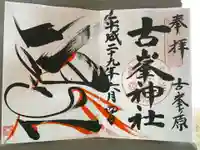 奉拝
古峯原
古峯神社
平成二十九年八月